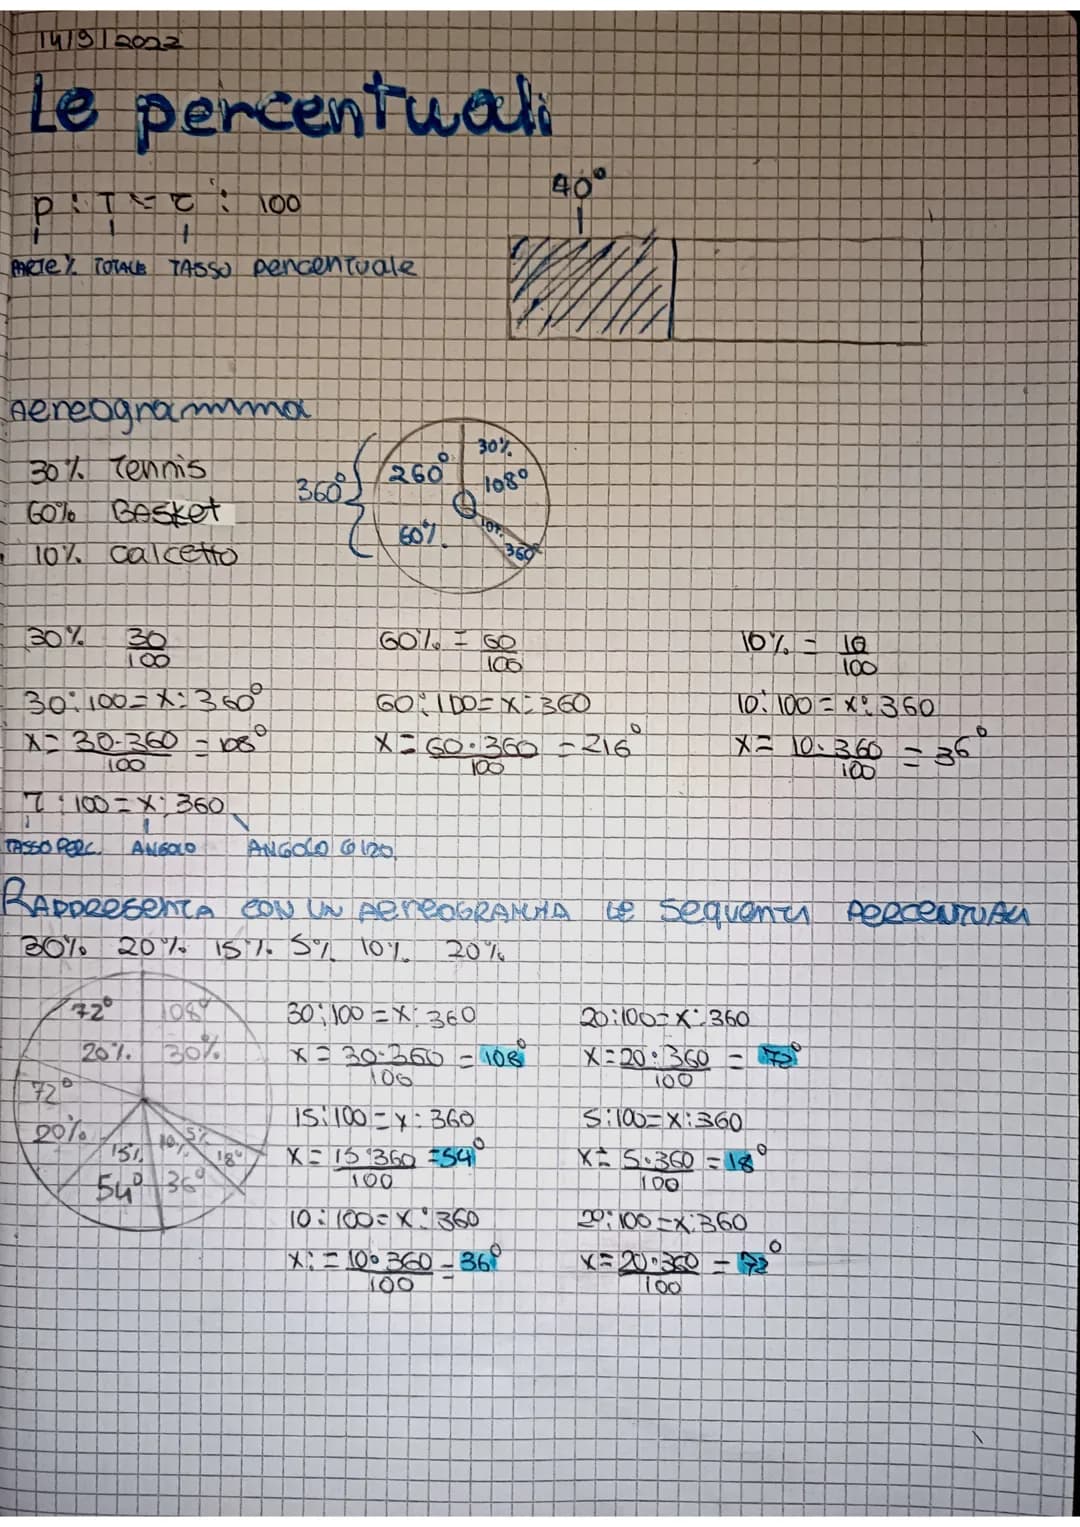 14/9/2022
Le percentuali
40°
p : T = τ : 100
PARTE % TOTALE TASSO percentuale
Aereogramma
30% Tennis
60% Basket
10% calcetto
360°
260° 30%
108°
60% 10%
360°
30% 30/100 60% = 60/100 10% = 10/100
30:100 = x:360° 60:100 = x:360 10:100 = x:360
x = 30·360/100 = 108° x = 60·360/100 = 216° x = 10·360/100 = 36°
τ : 100 = x : 360
TASSO PERC. ANGOLO ANGOLO GIRO
RAPPRESENTA CON UN AEREOGRAMMA LE SEGUENTI PERCENTUALI
30% 20% 15% 5% 10% 20%
72° 108°
20% 30%
72°
20% 15% 10% 5% 18°
54° 36°
30:100 = x:360 20:100 = x:360
x = 30·360/100 = 108° x = 20·360/100 = 72°
15:100 = x:360 5:100 = x:360
x = 15·360/100 = 54° x = 5·360/100 = 18°
10:100 = x:360 20:100 = x:360
x: = 10·360/100 = 36° x = 20·360/100 = 72°